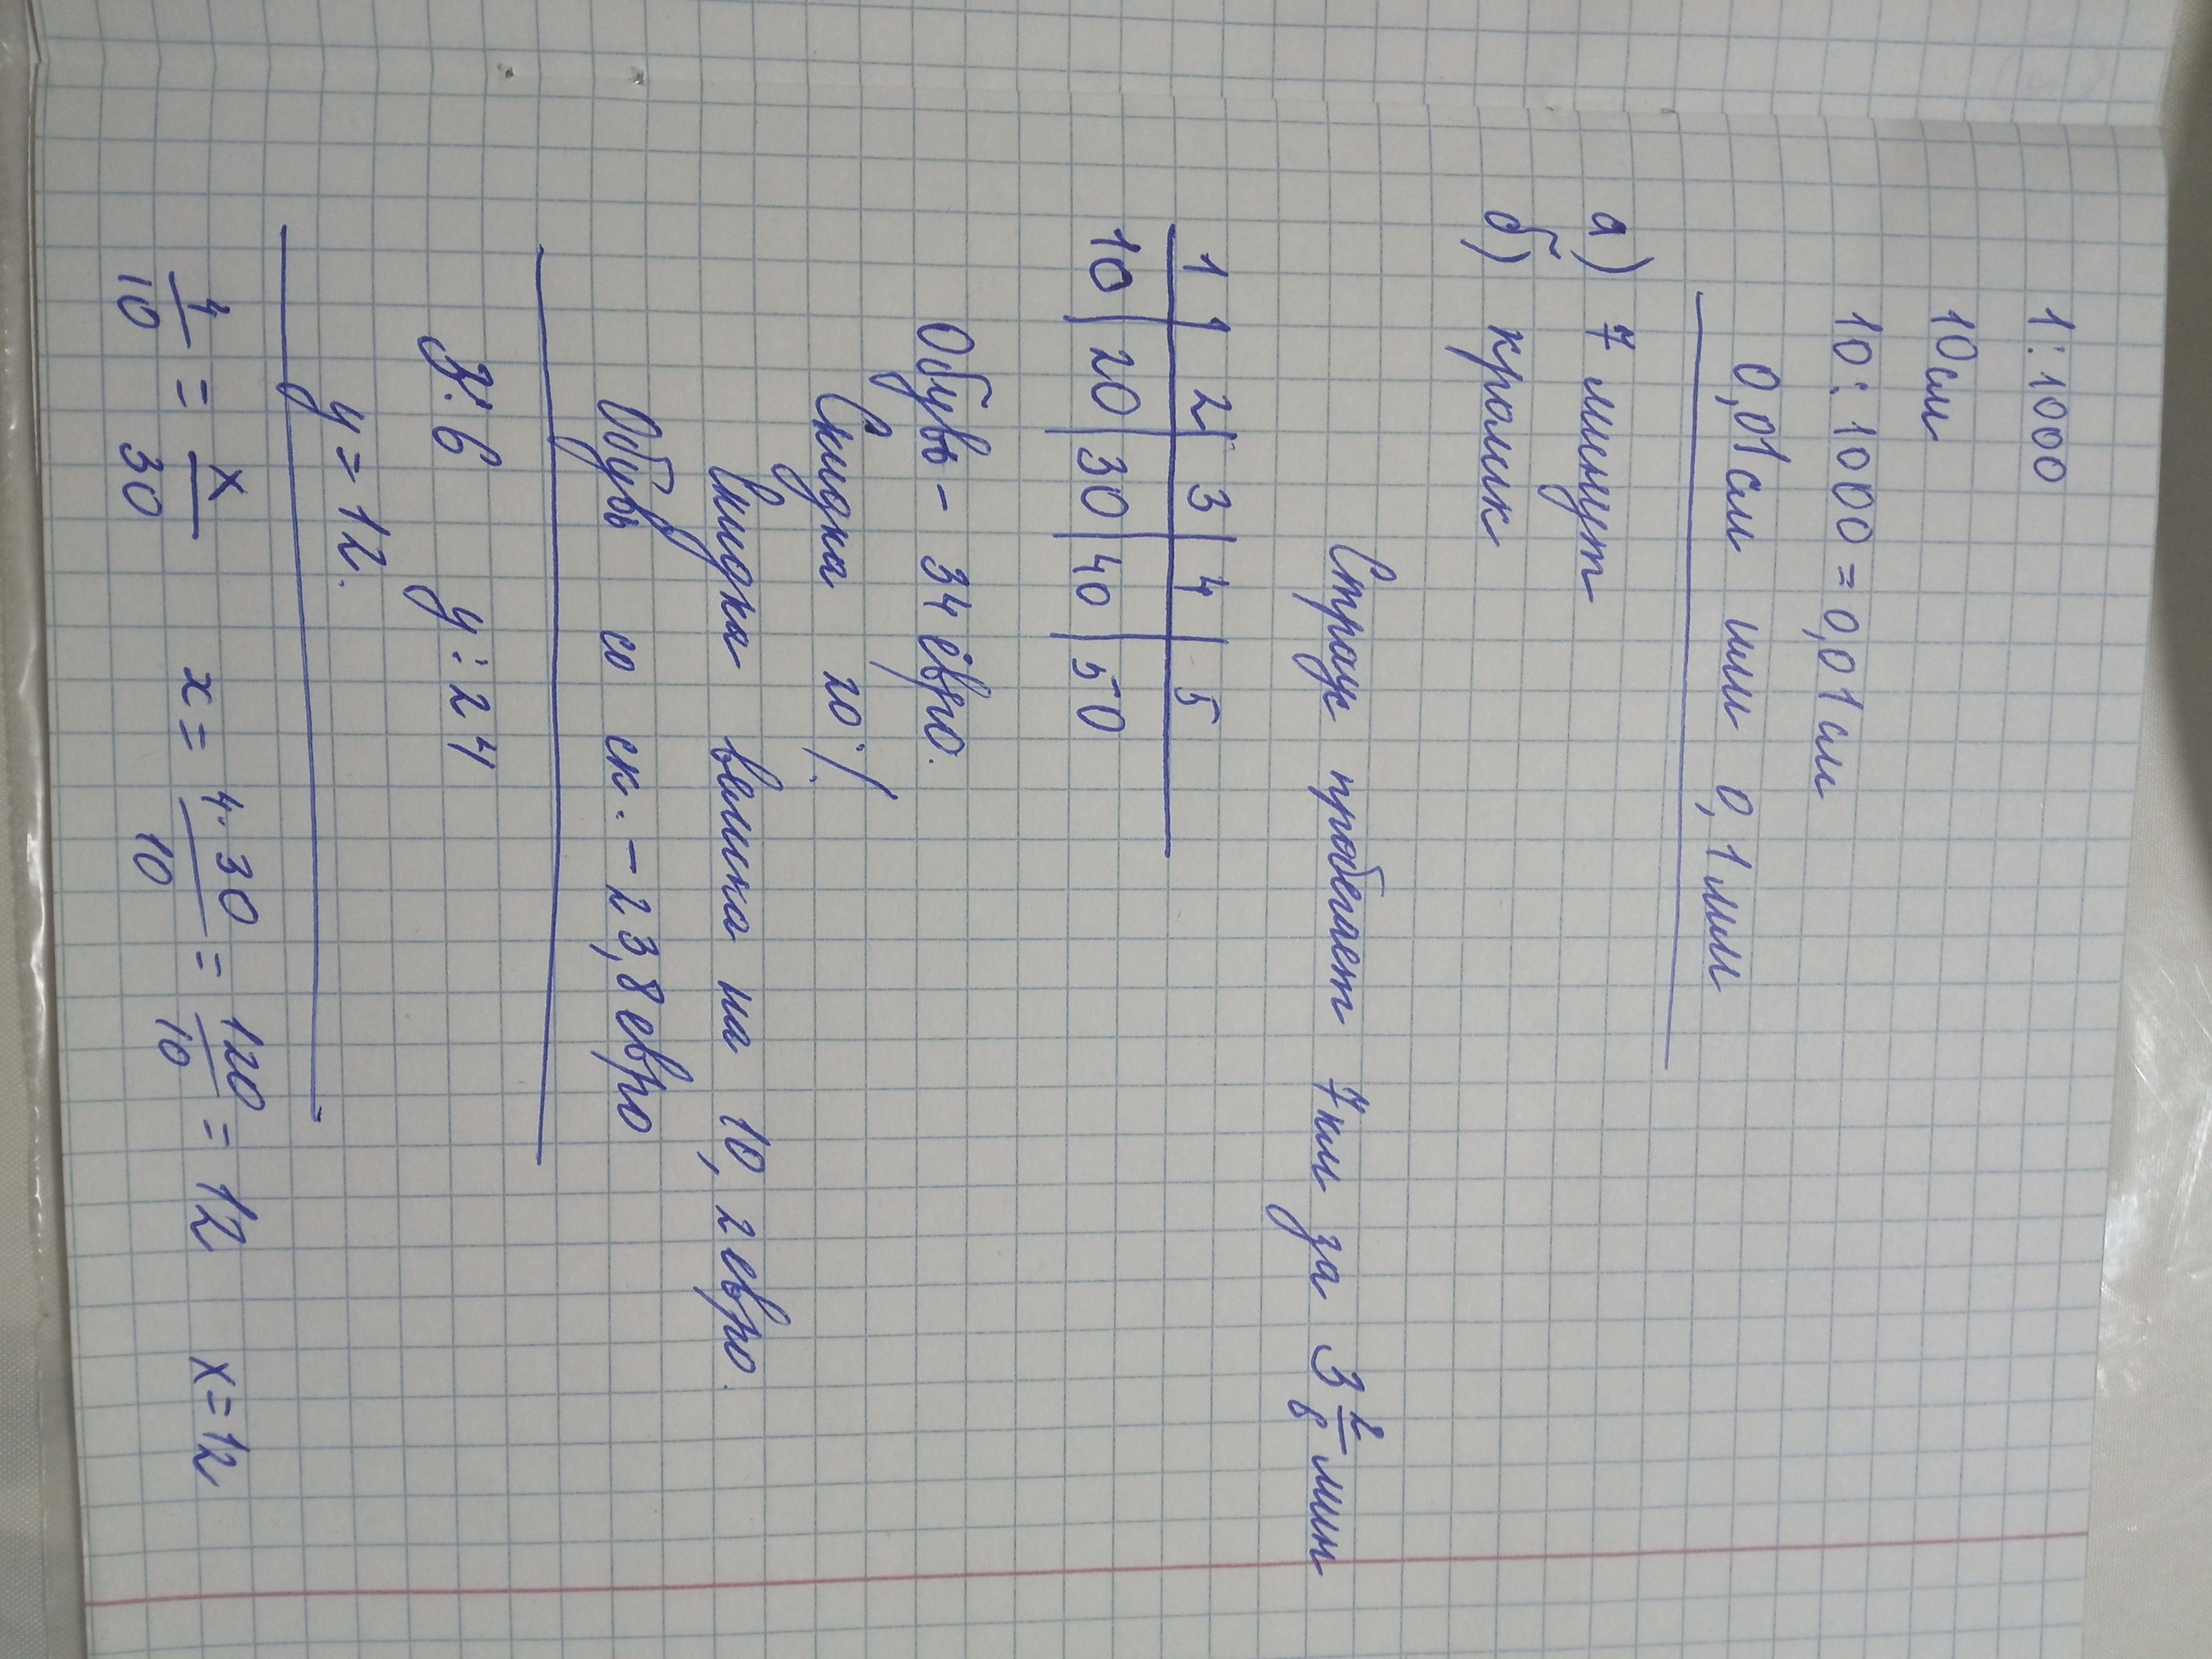 1:1000
10см
10:1000=0,01см
0,01см или 0,1мм
а) 7 минут
б) кролик
Страус пробегает 7км за 3 2/6 мин
1 | 2 | 3 | 4 | 5
10 | 20 | 30 | 40 | 50
Обувь - 34 евро.
Скидка 20%
Скидка велика на 10,2 евро.
Обувь со ск. - 23,8 евро
3:6 y:24
y=12.
4/10 = x/30 x= 4·30/10 = 120/10 = 12 x=12